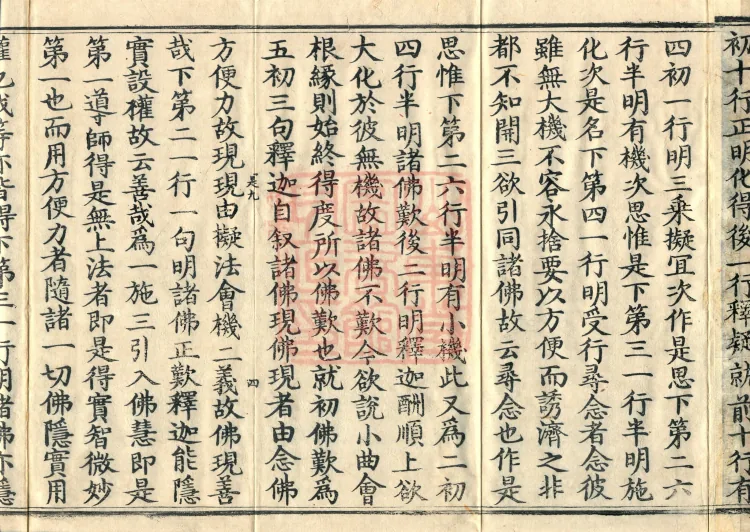 初十行正明化得後一行釋疑就前十行有
四初一行明三乘擬冝次作是思下第二六
行半明有機次思惟是下第三一行半明施
化次是名下第四一行明受行尋念者念彼
雖無大機不容永捨要以方便而誘濟之非
都不知開三欲引同諸佛故云尋念也作是
思惟下第二六行半明有小機此又爲二初
四行半明諸佛歎後二行明釋迦酬順上欲
大化於彼無機故諸佛不歎今欲說小曲會
根緣則始終得度所以佛歎也就初佛歎爲
五初三句釋迦自叙諸佛現佛現者由念佛
是九
四
方便力故現現由擬法會機二義故佛現善
哉下第二一行一句明諸佛正歎釋迦能隱
實設權故云善哉爲一施三引入佛慧即是
第一導師得是無上法者即是得實智微妙
第一也而用方便力者隨諸一切佛隱實用
權也我等亦皆得下第三一行明諸佛亦隱